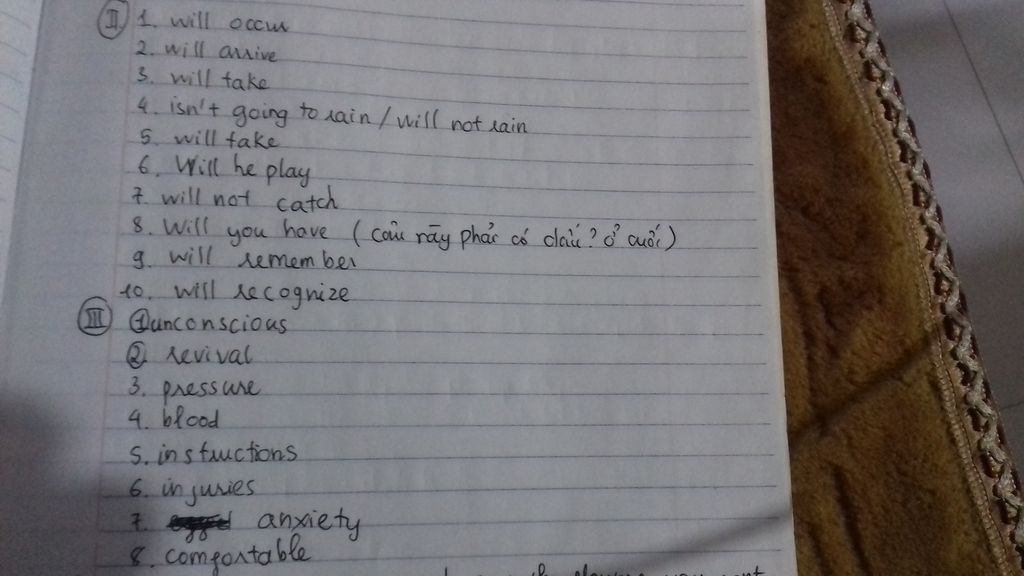 II 1. will occur
2. will arrive
3. will take
4. isn't going to rain / will not rain
5. will take
6. Will he play
7. will not catch
8. Will you have (câu này phải có dấu ? ở cuối)
9. will remember
10. will recognize
III 1 unconscious
2 revival
3. pressure
4. blood
5. instructions
6. injuries
7. anxiety
8. comfortable